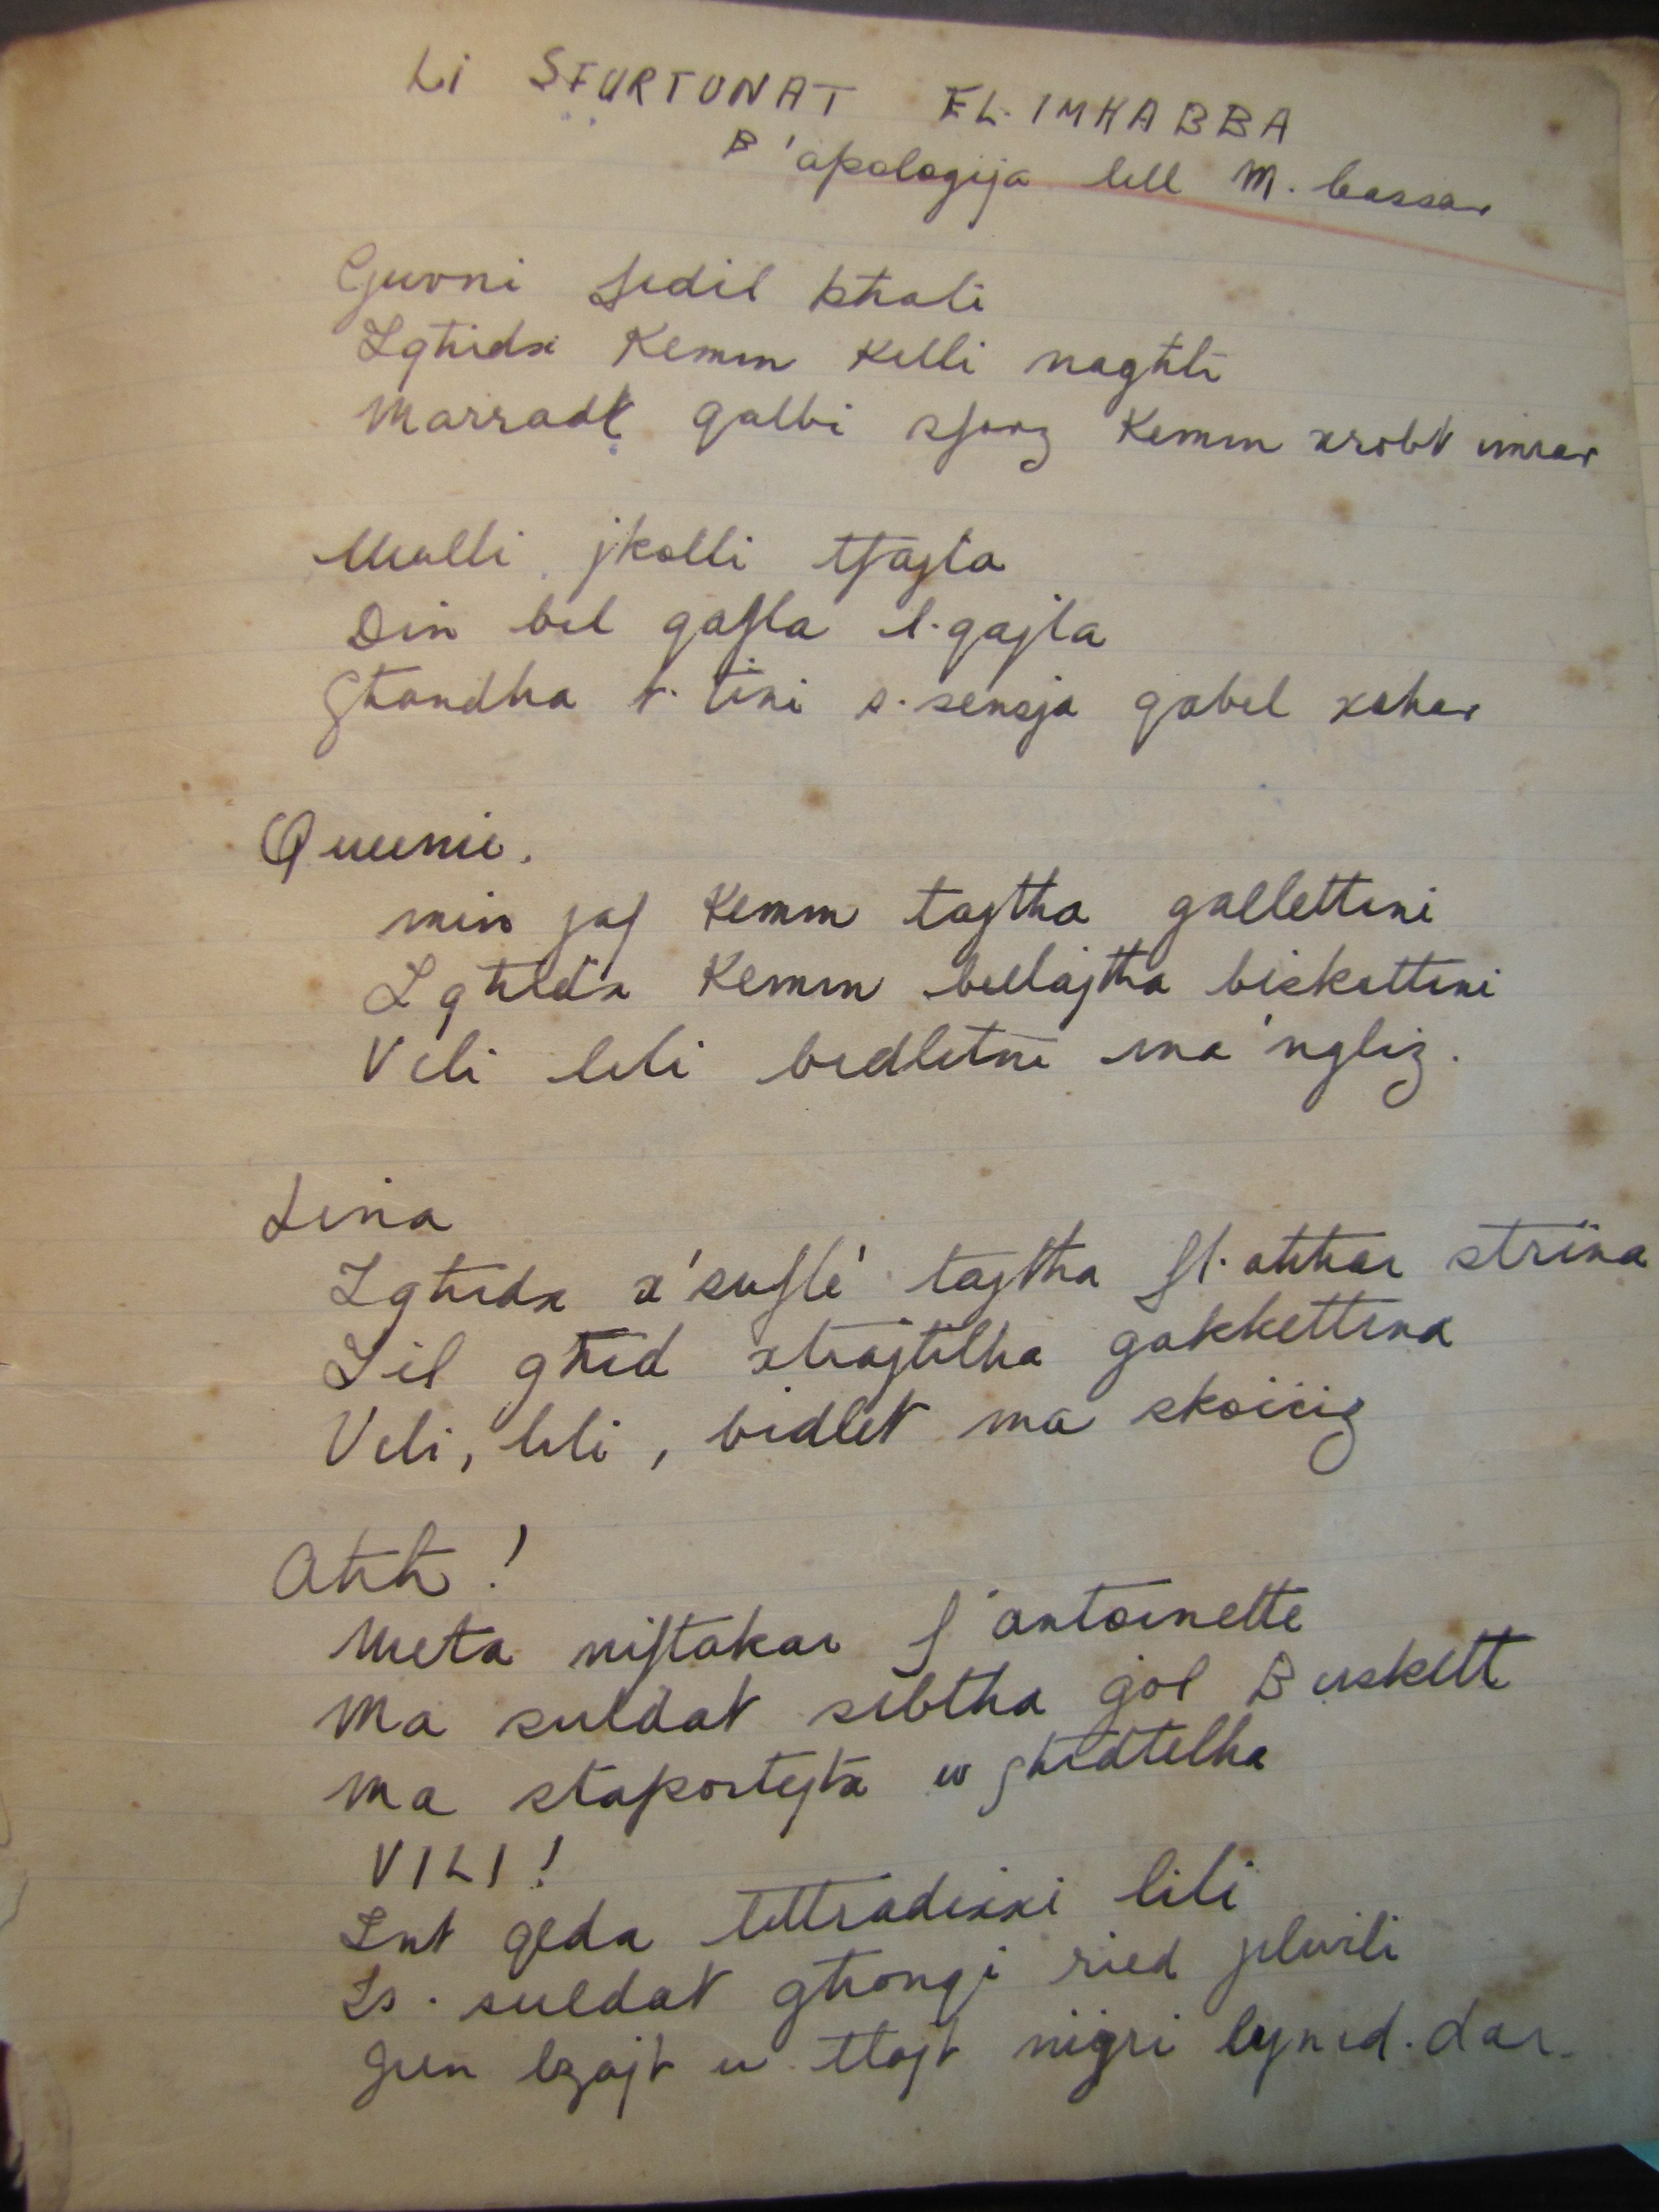 LI SFURTUNAT FL-IMĦABBA
B'apologija lill M. Cassar
Ġuvni fidil ħali
Tgħidx Kemm Killi nagħli
Marradt qalbi sforz Kemm xrobt imrar
Malli jkolli tfajla
Din bil qafla l-qajla
Għandha t-tini s-sensja qabel xahar
Queenie.
min jaf Kemm tajtha gallettini
Tgħidx Kemm bellajtha biskuttini
Vili lili bidlitni ma 'ngliz.
Lina
Tgħidx x'suflè tajtha fl-aħħar strina
Lil għid xtrajtilha ġakkettina
Vili, lili, bidlet ma skoċċiż
Aħħ!
Meta niftakar f'Antoinette
Ma suldat sibtha ġol Buskett
Ma staportejtx u għidtilha
VILI!
Int qeda tittradixxi lili
Is-suldat għonqi ried jelwili
Ġien bżajt u tlajt niġri lejn id-dar.